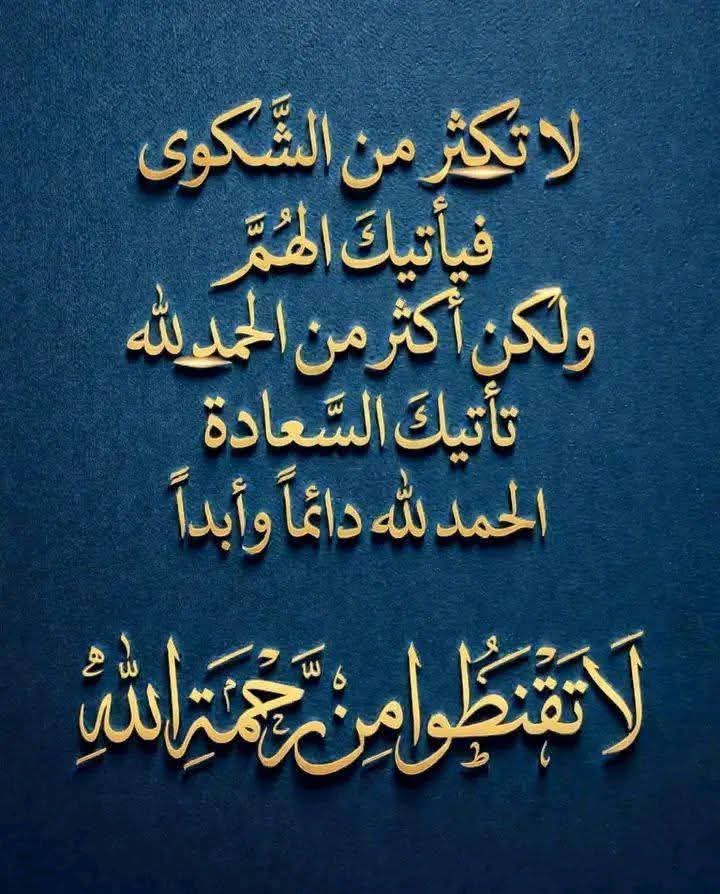 لا تكثر من الشَّكوى
فيأتيكَ الهُمَّ
ولكن أكثر من الحمد لله
تأتيكَ السَّعادة
الحمد لله دائماً وأبداً
لَا تَقْنَطُوا مِن رَّحْمَةِ اللهِ